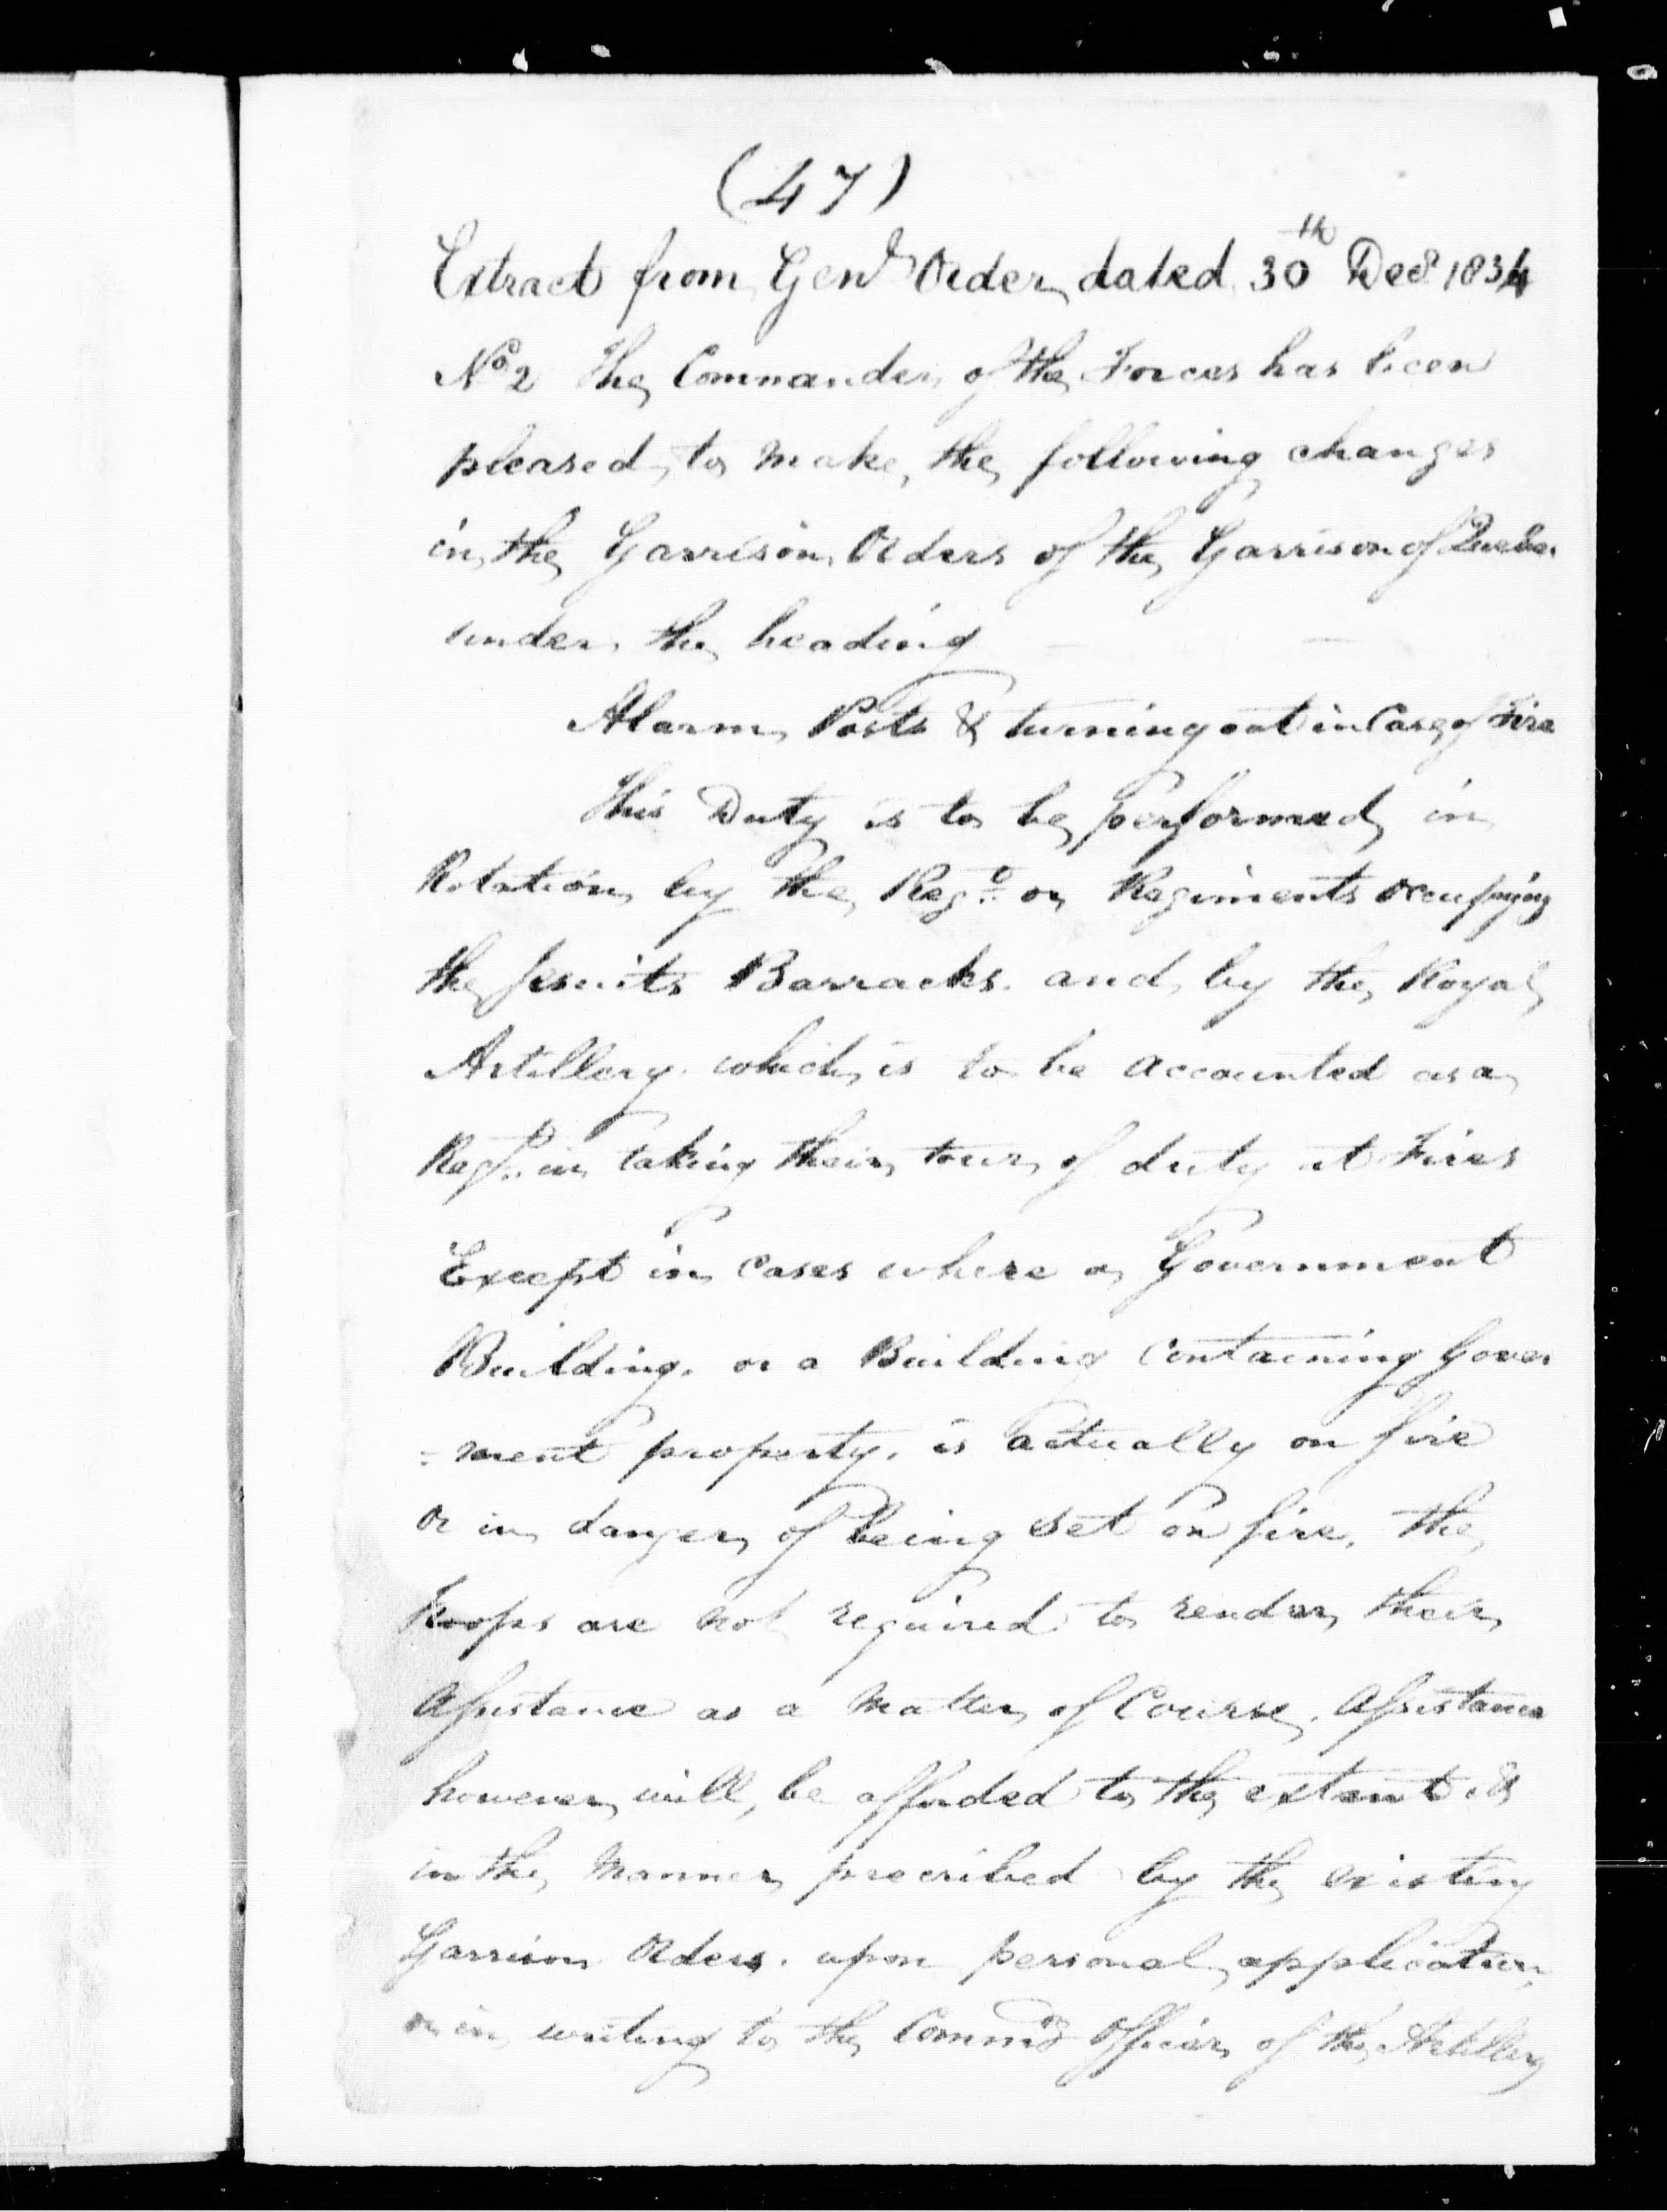 (47)
Extract from Genl Order dated 30th Decr 1834
No 2 The Commander of the Forces has been
pleased to make the following changes
in the Garrison Orders of the Garrison of Quebec
under the heading
Alarm Posts & turning out in Case of Fire
This Duty is to be performed in
Rotation by the Regt or Regiments occupying
the Jesuits Barracks. and by the Royal
Artillery. which is to be accounted as a
Regt. in taking their tour of duty at Fires
Except in Cases where a Government
Building. or a Building Containing Govern
=ment property. is actually on fire
or in danger of being set on fire, the
troops are not required to render their
Assistance as a Matter of Course. Assistance
however will, be afforded to the extent &
in the Manner precribed by the existing
Garrison Orders. upon personal application
or in writing to the Commdg Officer of the Artillery